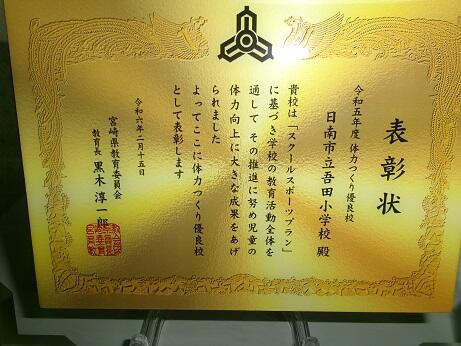 表彰状
令和五年度 体力つくり優良校
日南市立吾田小学校 殿
貴校は「スクールスポーツプラン」
に基づき学校の教育活動全体を
通して その推進に努め児童の
体力向上に大きな成果をあげ
られました
よってここに体力つくり優良校
として表彰します
令和六年二月十五日
宮崎県教育委員会
教育長 黒木淳一郎